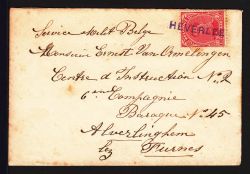 HEVERLEE
Service Milit Belge
Monsieur Ernest Van Ormelingen
Centre d'Instruction No 2
6en Compagnie
Baraque No 45
Alveringhem
lez Furnes